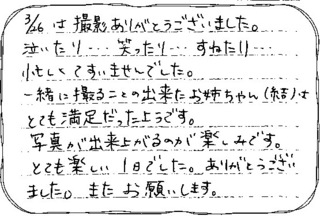 3/26 は 撮影ありがとうございました。
泣いたり…笑ったり…すねたり…
忙しくてすいませんでした。
一緒に撮ることの出来たお姉ちゃん(結)は
とても満足だったようです。
写真が出来上がるのが楽しみです。
とても楽しい1日でした。ありがとうござい
ました。またお願いします。